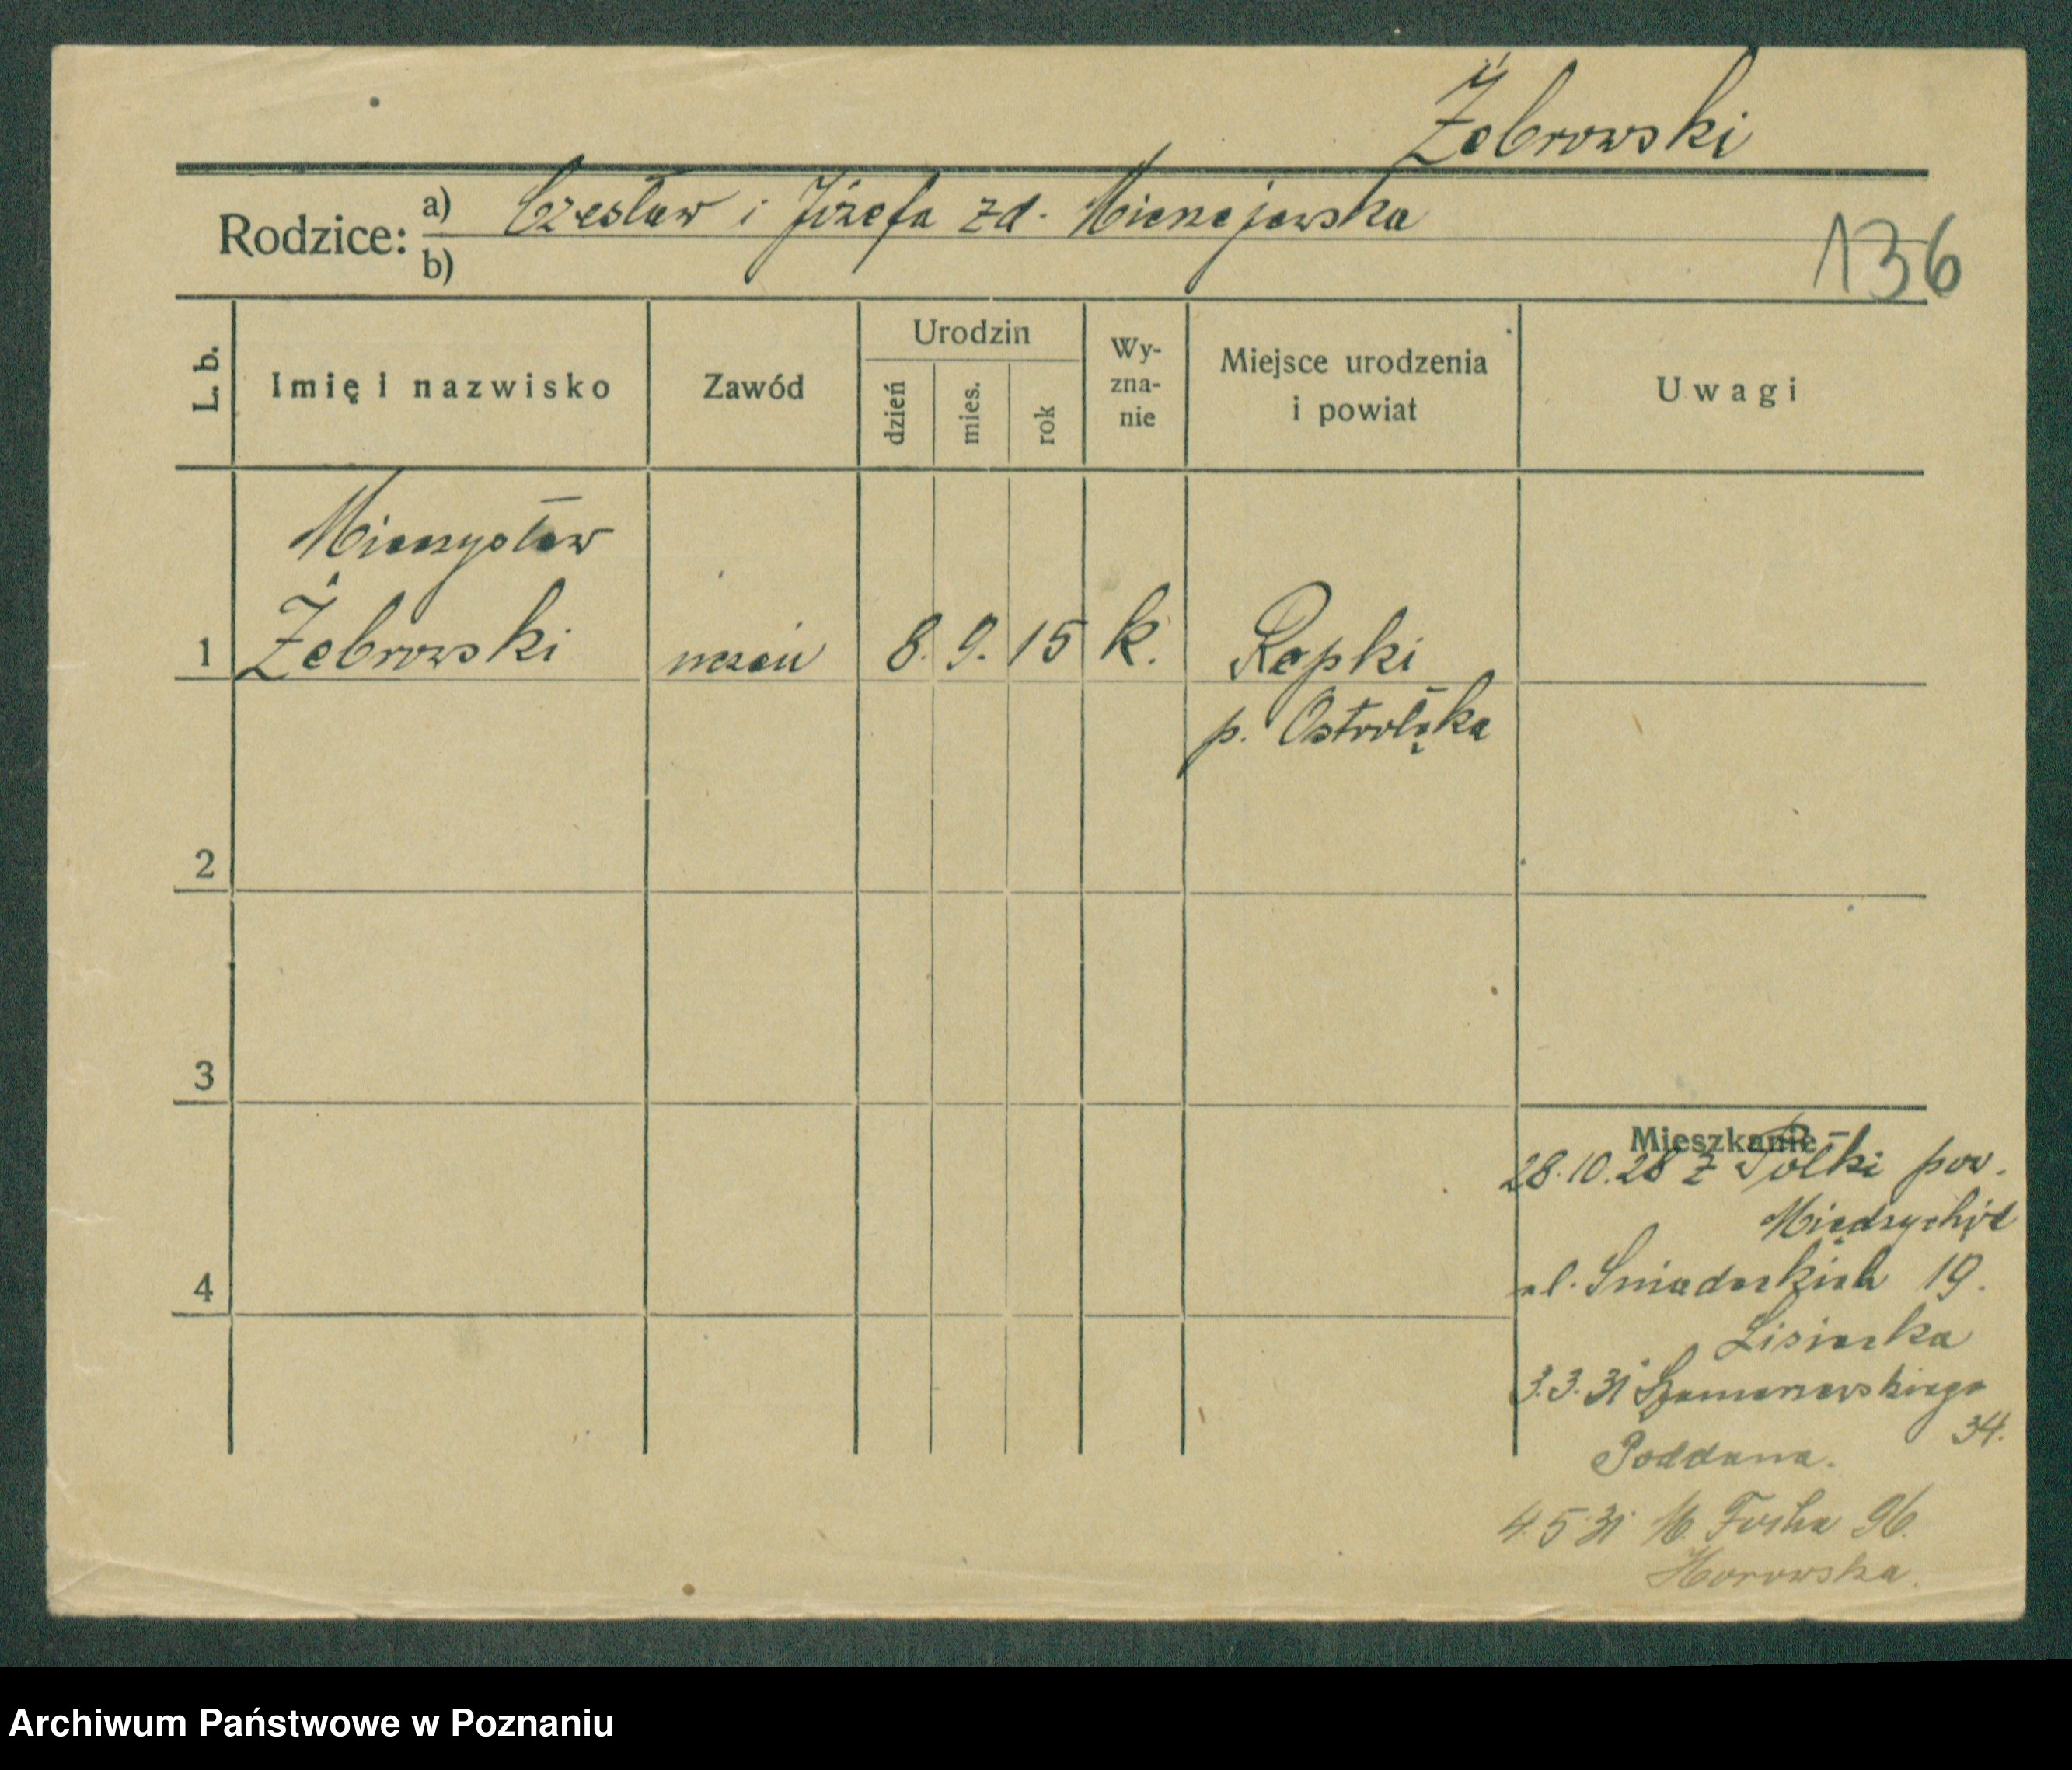 Żebrowski
Rodzice: a) Czesław i Józefa zd.
b)
136
L. b. Imię i nazwisko Zawód Urodzin dzień mies. rok Wy-
zna-
nie Miejsce urodzenia
i powiat Uwagi
Mieczysław
1 Żebrowski uczeń 8. 9. 15 k. Rapki
p. Ostrołęka
2
3
4
Mieszkanie
28.10.28 z Polki pow.
Międzychód
ul. Śniadeckich 19.
Lisiecka
3.3.31 Szamarzewskiego
34.
Poddana.
4.5.31 M. Focha 96.
Horowska.
Archiwum Państwowe w Poznaniu